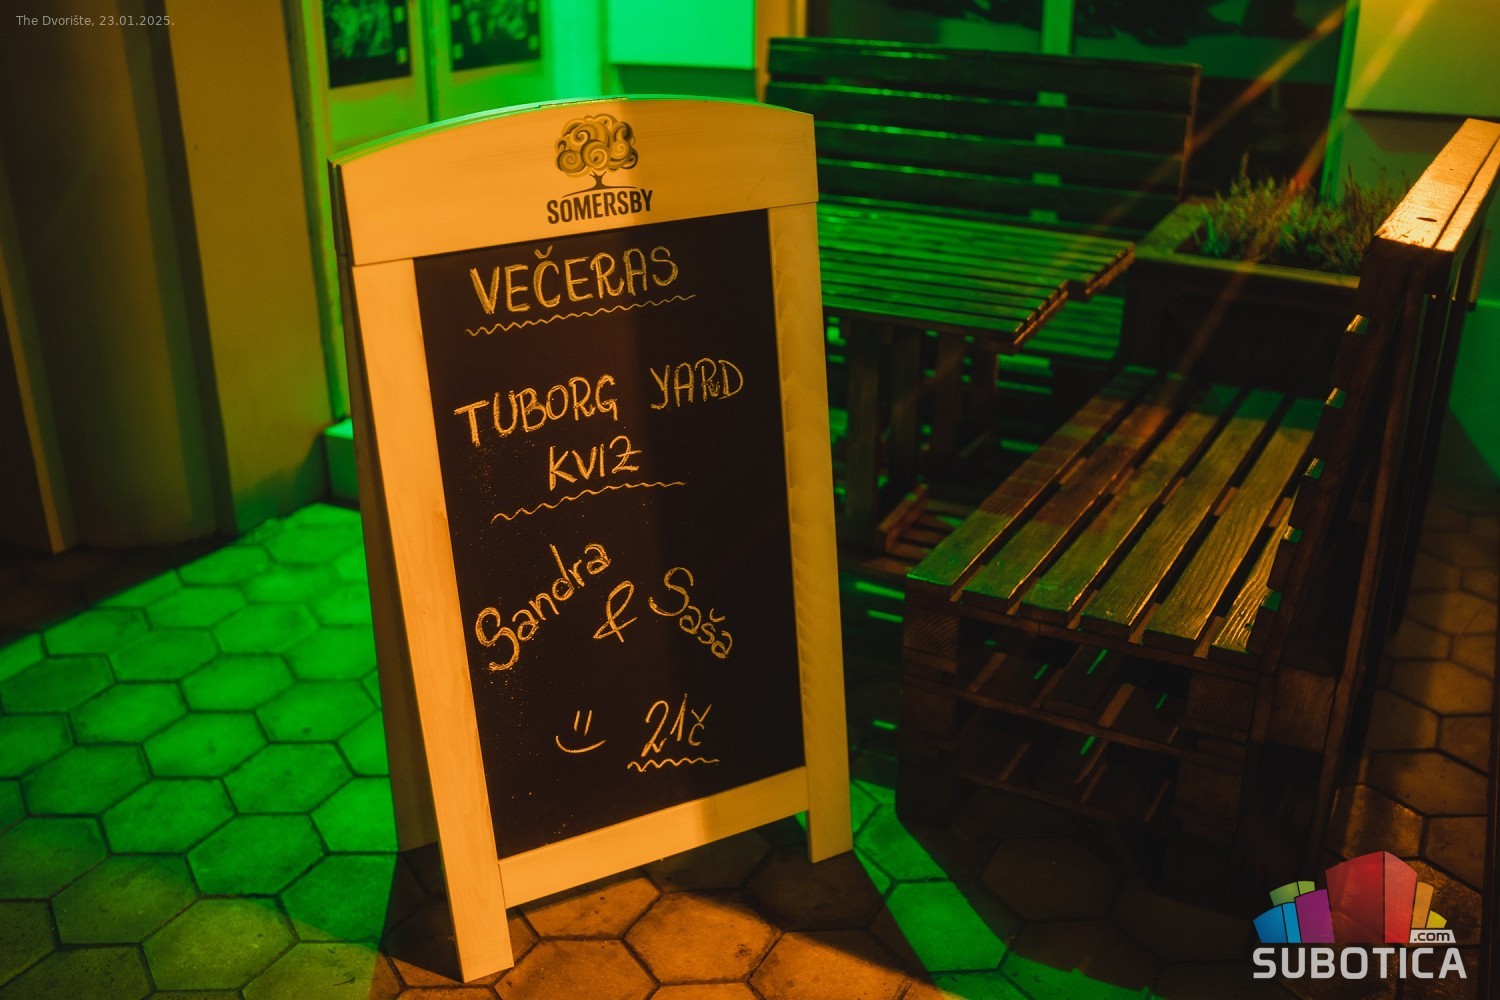 The Dvorište, 23.01.2025.
SOMERSBY
VEČERAS
TUBORG YARD
KVIZ
Sandra
& Saša
21č
.com
SUBOTICA